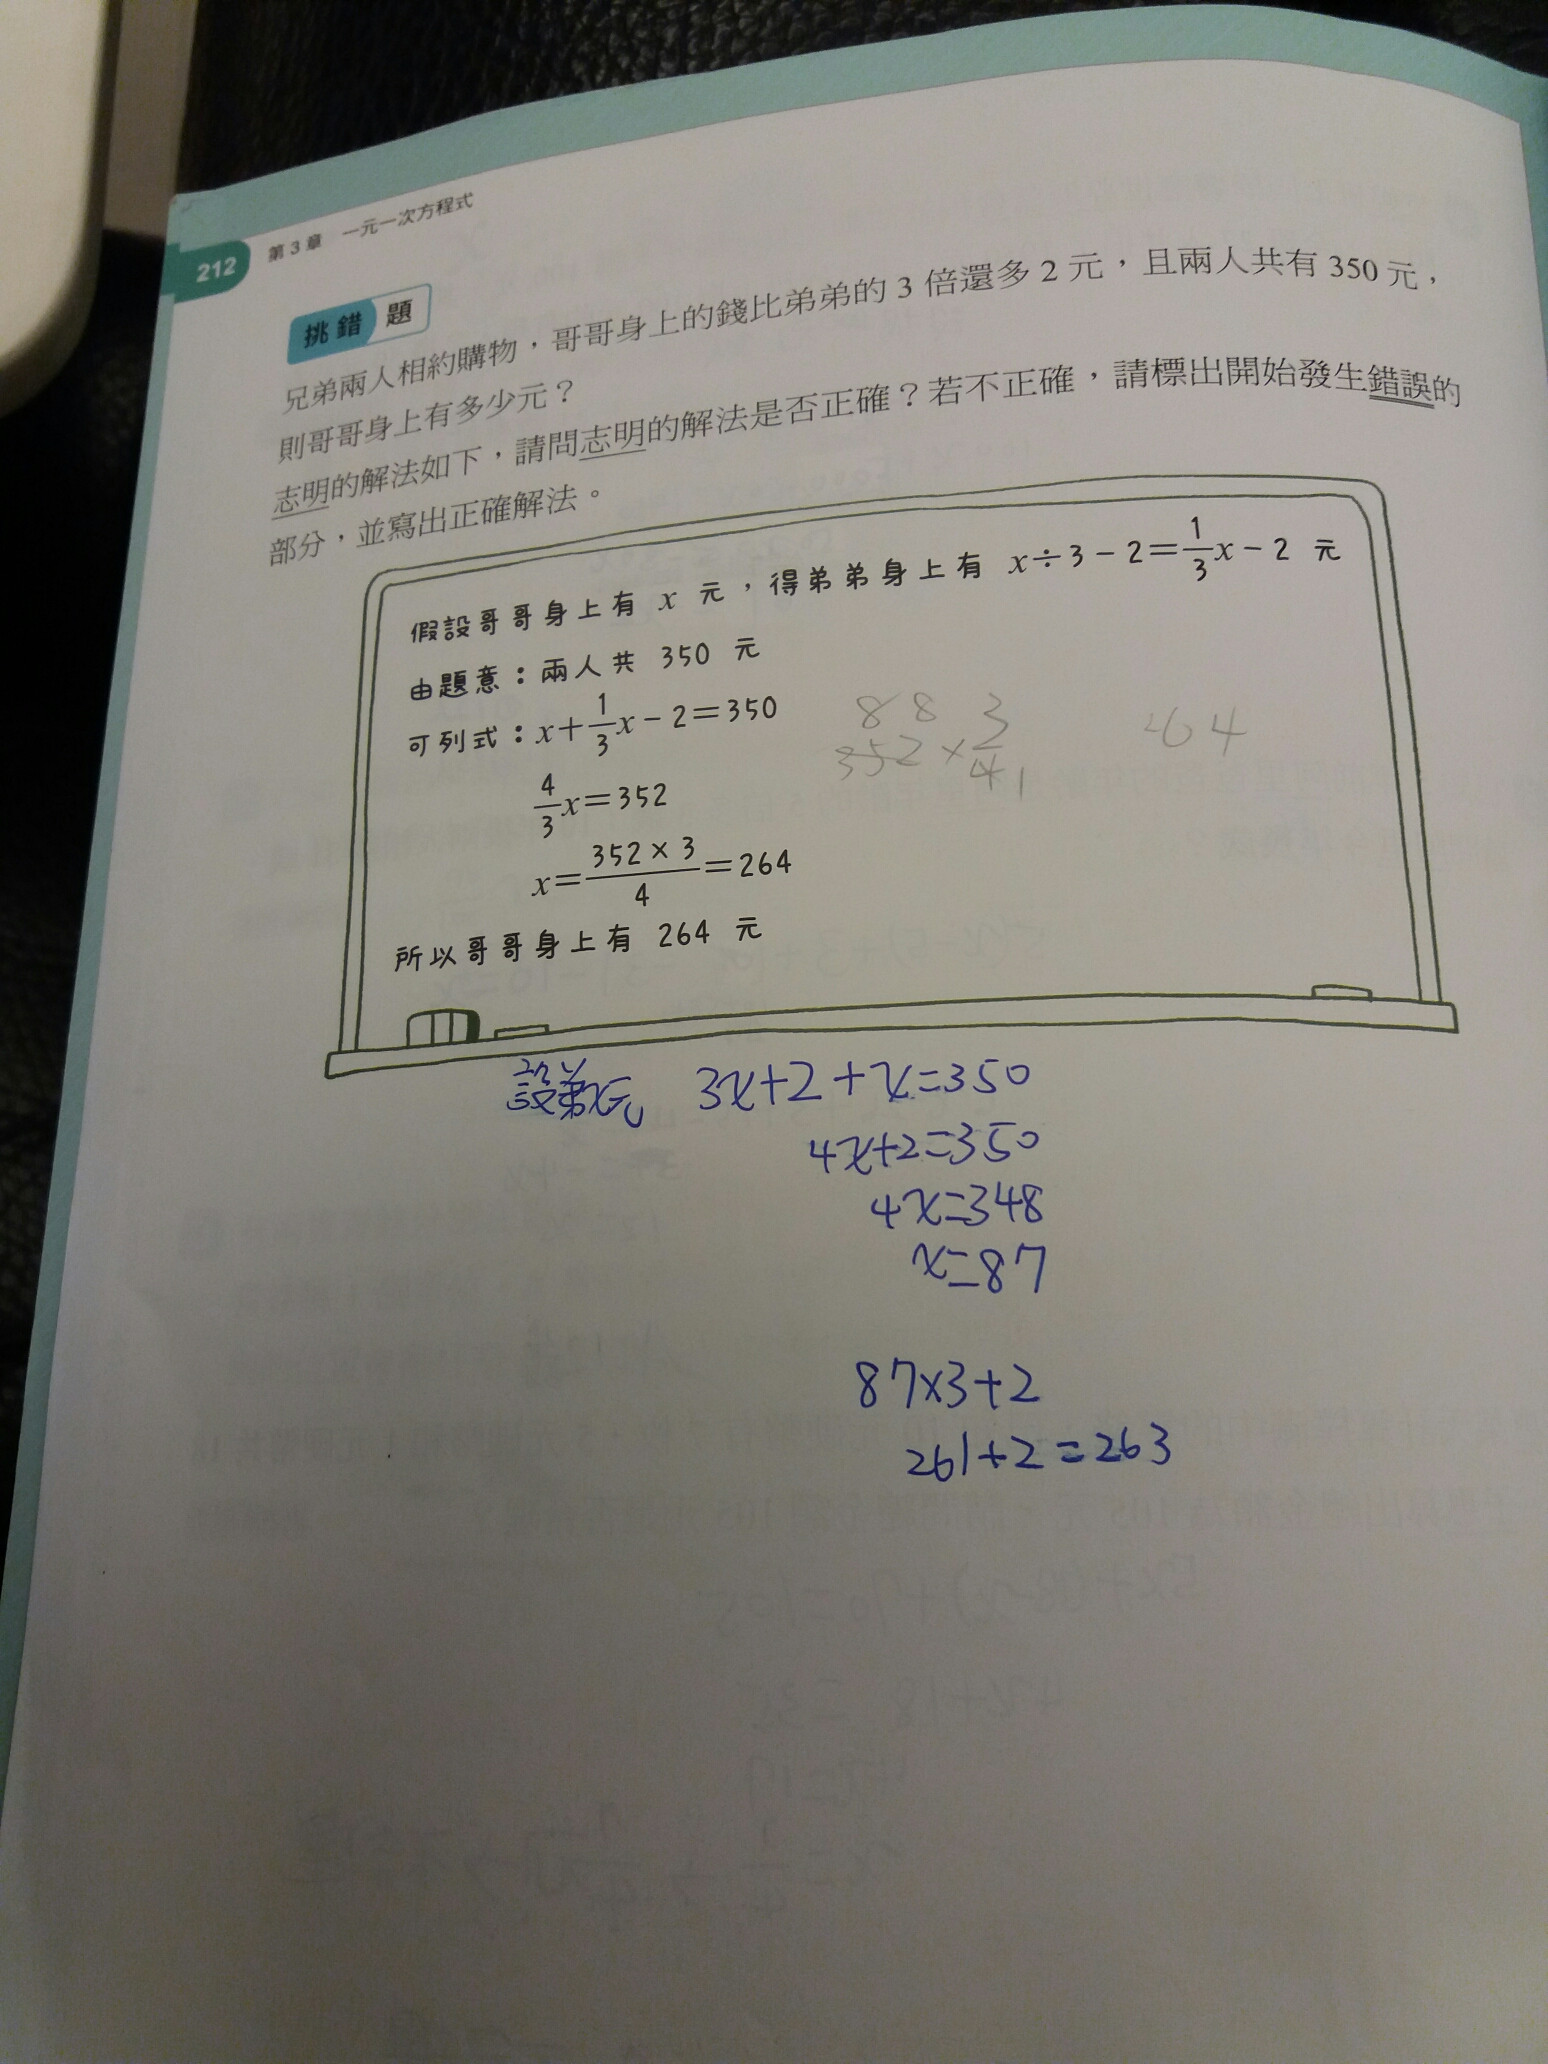 212 第3章 一元一次方程式
挑錯題
兄弟兩人相約購物，哥哥身上的錢比弟弟的3倍還多2元，且兩人共有350元，
則哥哥身上有多少元？
志明的解法如下，請問志明的解法是否正確？若不正確，請標出開始發生錯誤的
部分，並寫出正確解法。
假設哥哥身上有 x 元，得弟弟身上有 x÷3－2＝1/3x－2 元
由題意：兩人共 350 元
可列式：x＋1/3x－2＝350
88 3
352×4 1
264
4/3x＝352
x＝352×3/4＝264
所以哥哥身上有 264 元
設弟x元 3x+2+x=350
4x+2=350
4x=348
x=87
87×3+2
261+2=263